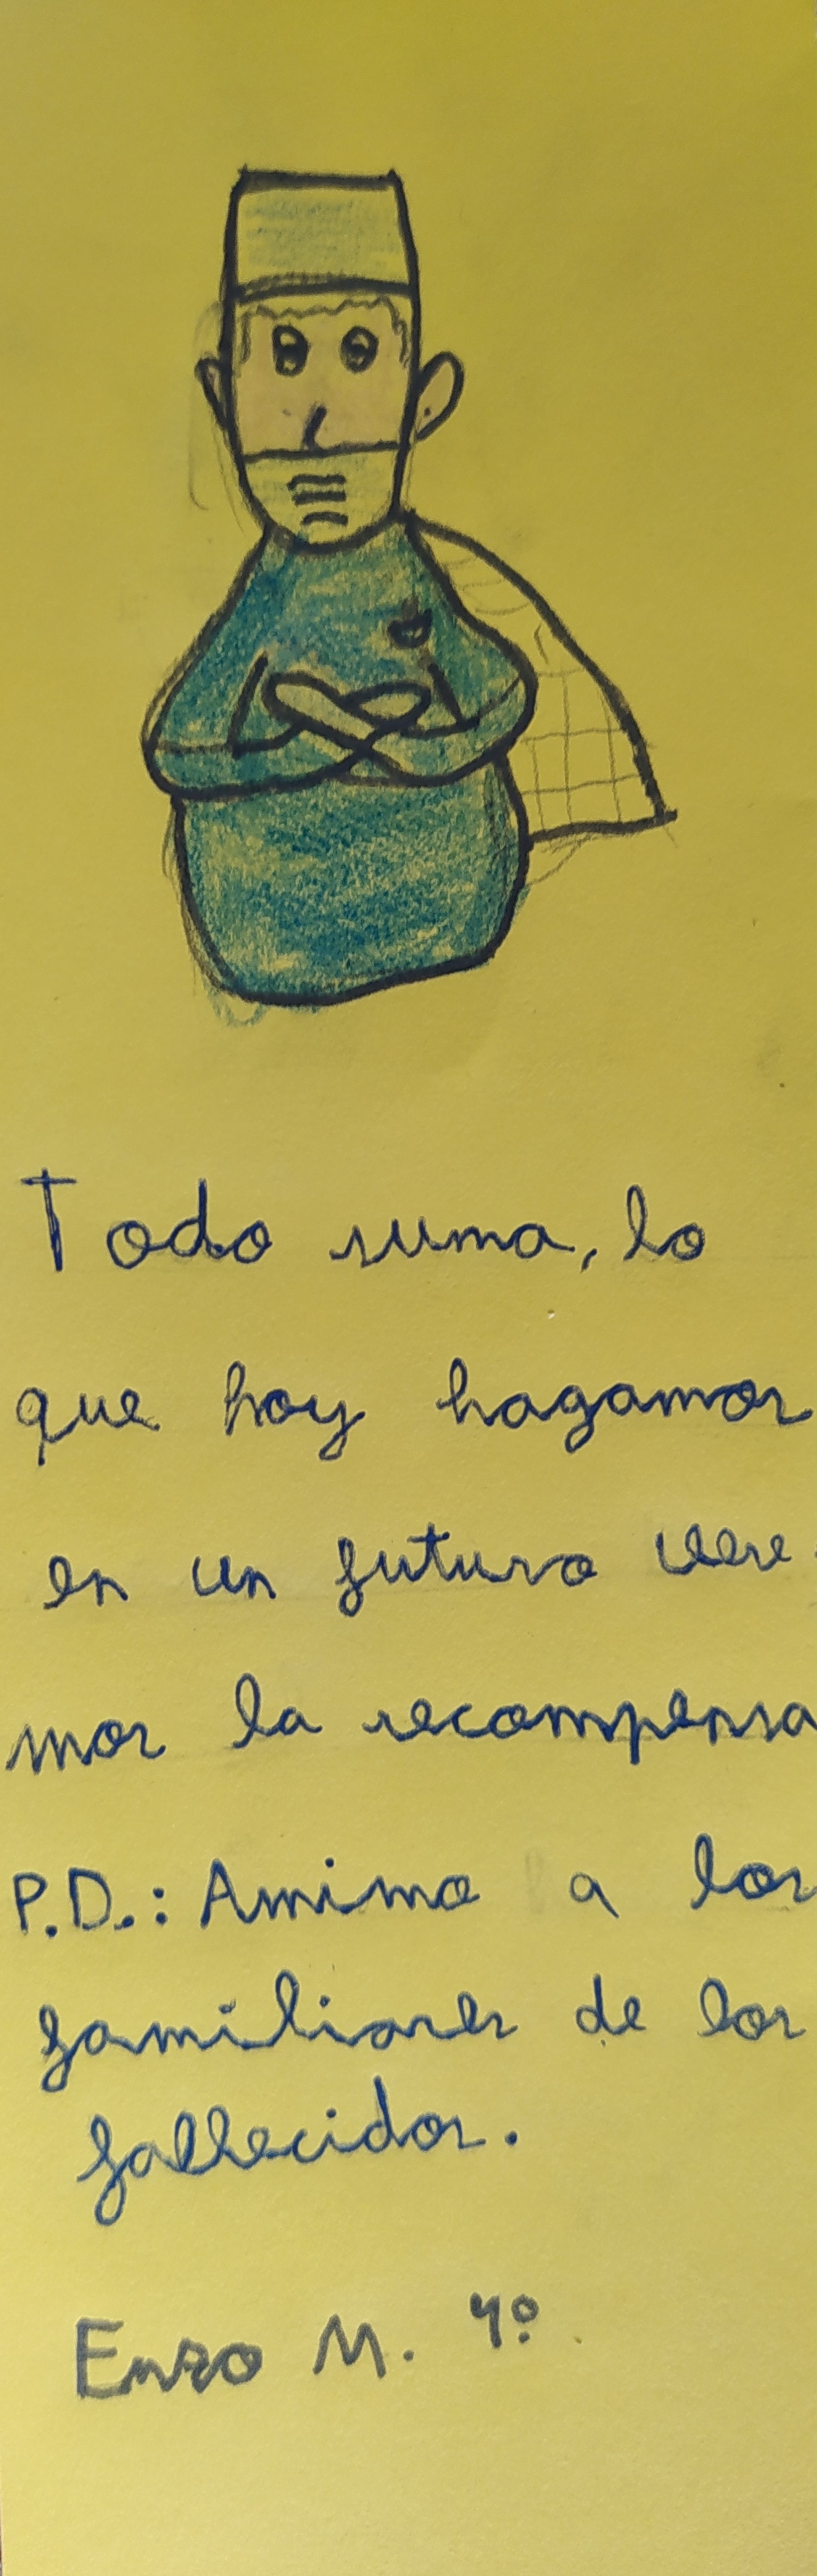 Todo suma, lo
que hoy hagamos
en un futuro vere-
mos la recompensa
P.D.: Animo a los
familiares de los
fallecidos.
Enzo M. 4º